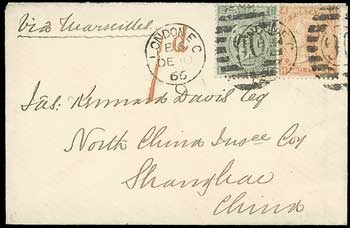 Via Marseilles.
LONDON E.C
DE 10
66
Jas: Kennard Davis Esq
North China Insce Coy
Shanghae
China